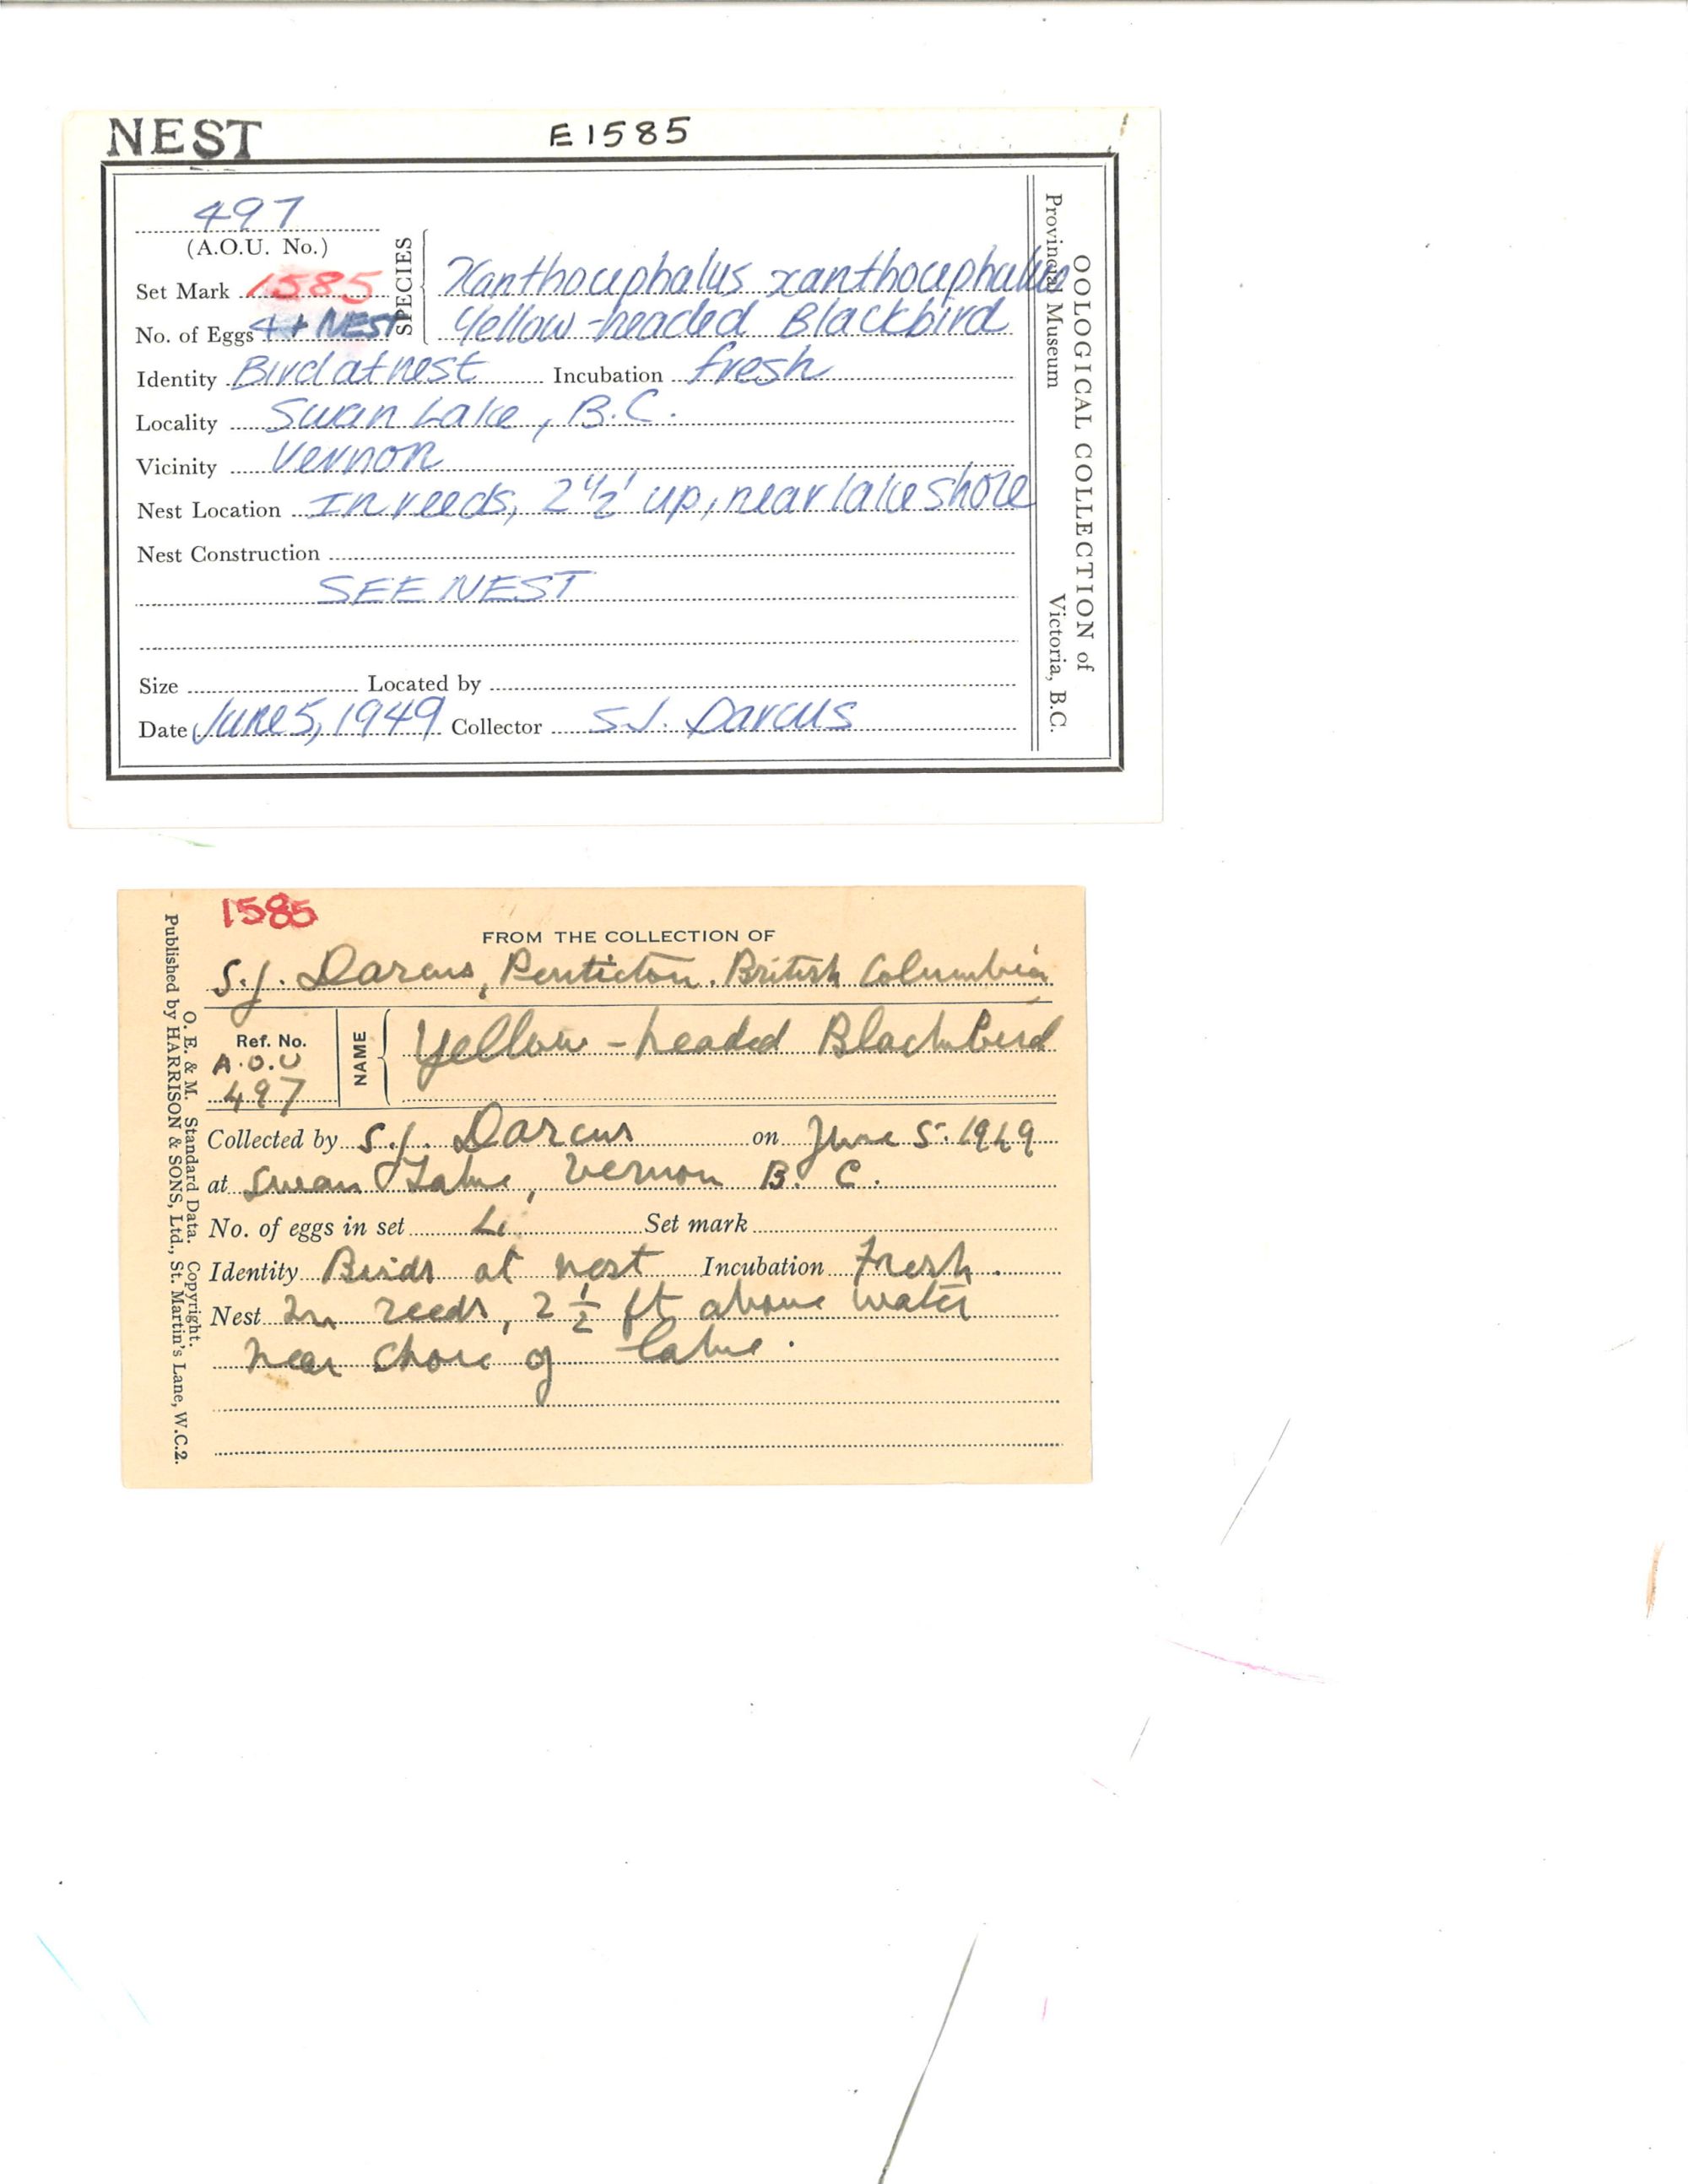 NEST
E1585
497
(A.O.U. No.)
SPECIES
Xanthocephalus xanthocephalus
Set Mark 1585
Yellow-headed Blackbird
No. of Eggs 4 + NEST
Identity Bird at nest Incubation fresh
Locality Swan Lake, B.C.
Vicinity Vernon
Nest Location In reeds, 2 1/2' up, near lake shore
Nest Construction
SEE NEST
Size Located by
Date June 5, 1949 Collector S.J. Darcus
OOLOGICAL COLLECTION of
Provincial Museum Victoria, B.C.
1585
FROM THE COLLECTION OF
S.J. Darcus, Penticton. British Columbia
Ref. No.
A.O.U
497
NAME
Yellow-headed Blackbird
Collected by S.J. Darcus on June 5. 1949
at Swan Lake, Vernon B. C.
No. of eggs in set 4 Set mark
Identity Birds at nest Incubation Fresh.
Nest In reeds, 2 1/2 ft above water
near shore of lake.
O. E. & M. Standard Data. Copyright.
Published by HARRISON & SONS, Ltd., St. Martin's Lane, W.C.2.